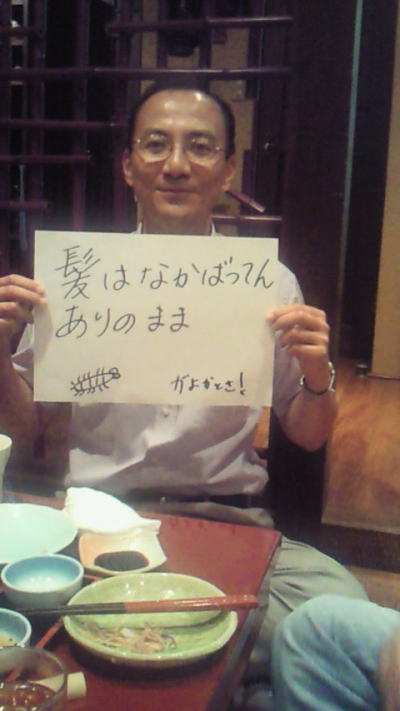 髪はなかばってん
ありのまま
がよかとさ!